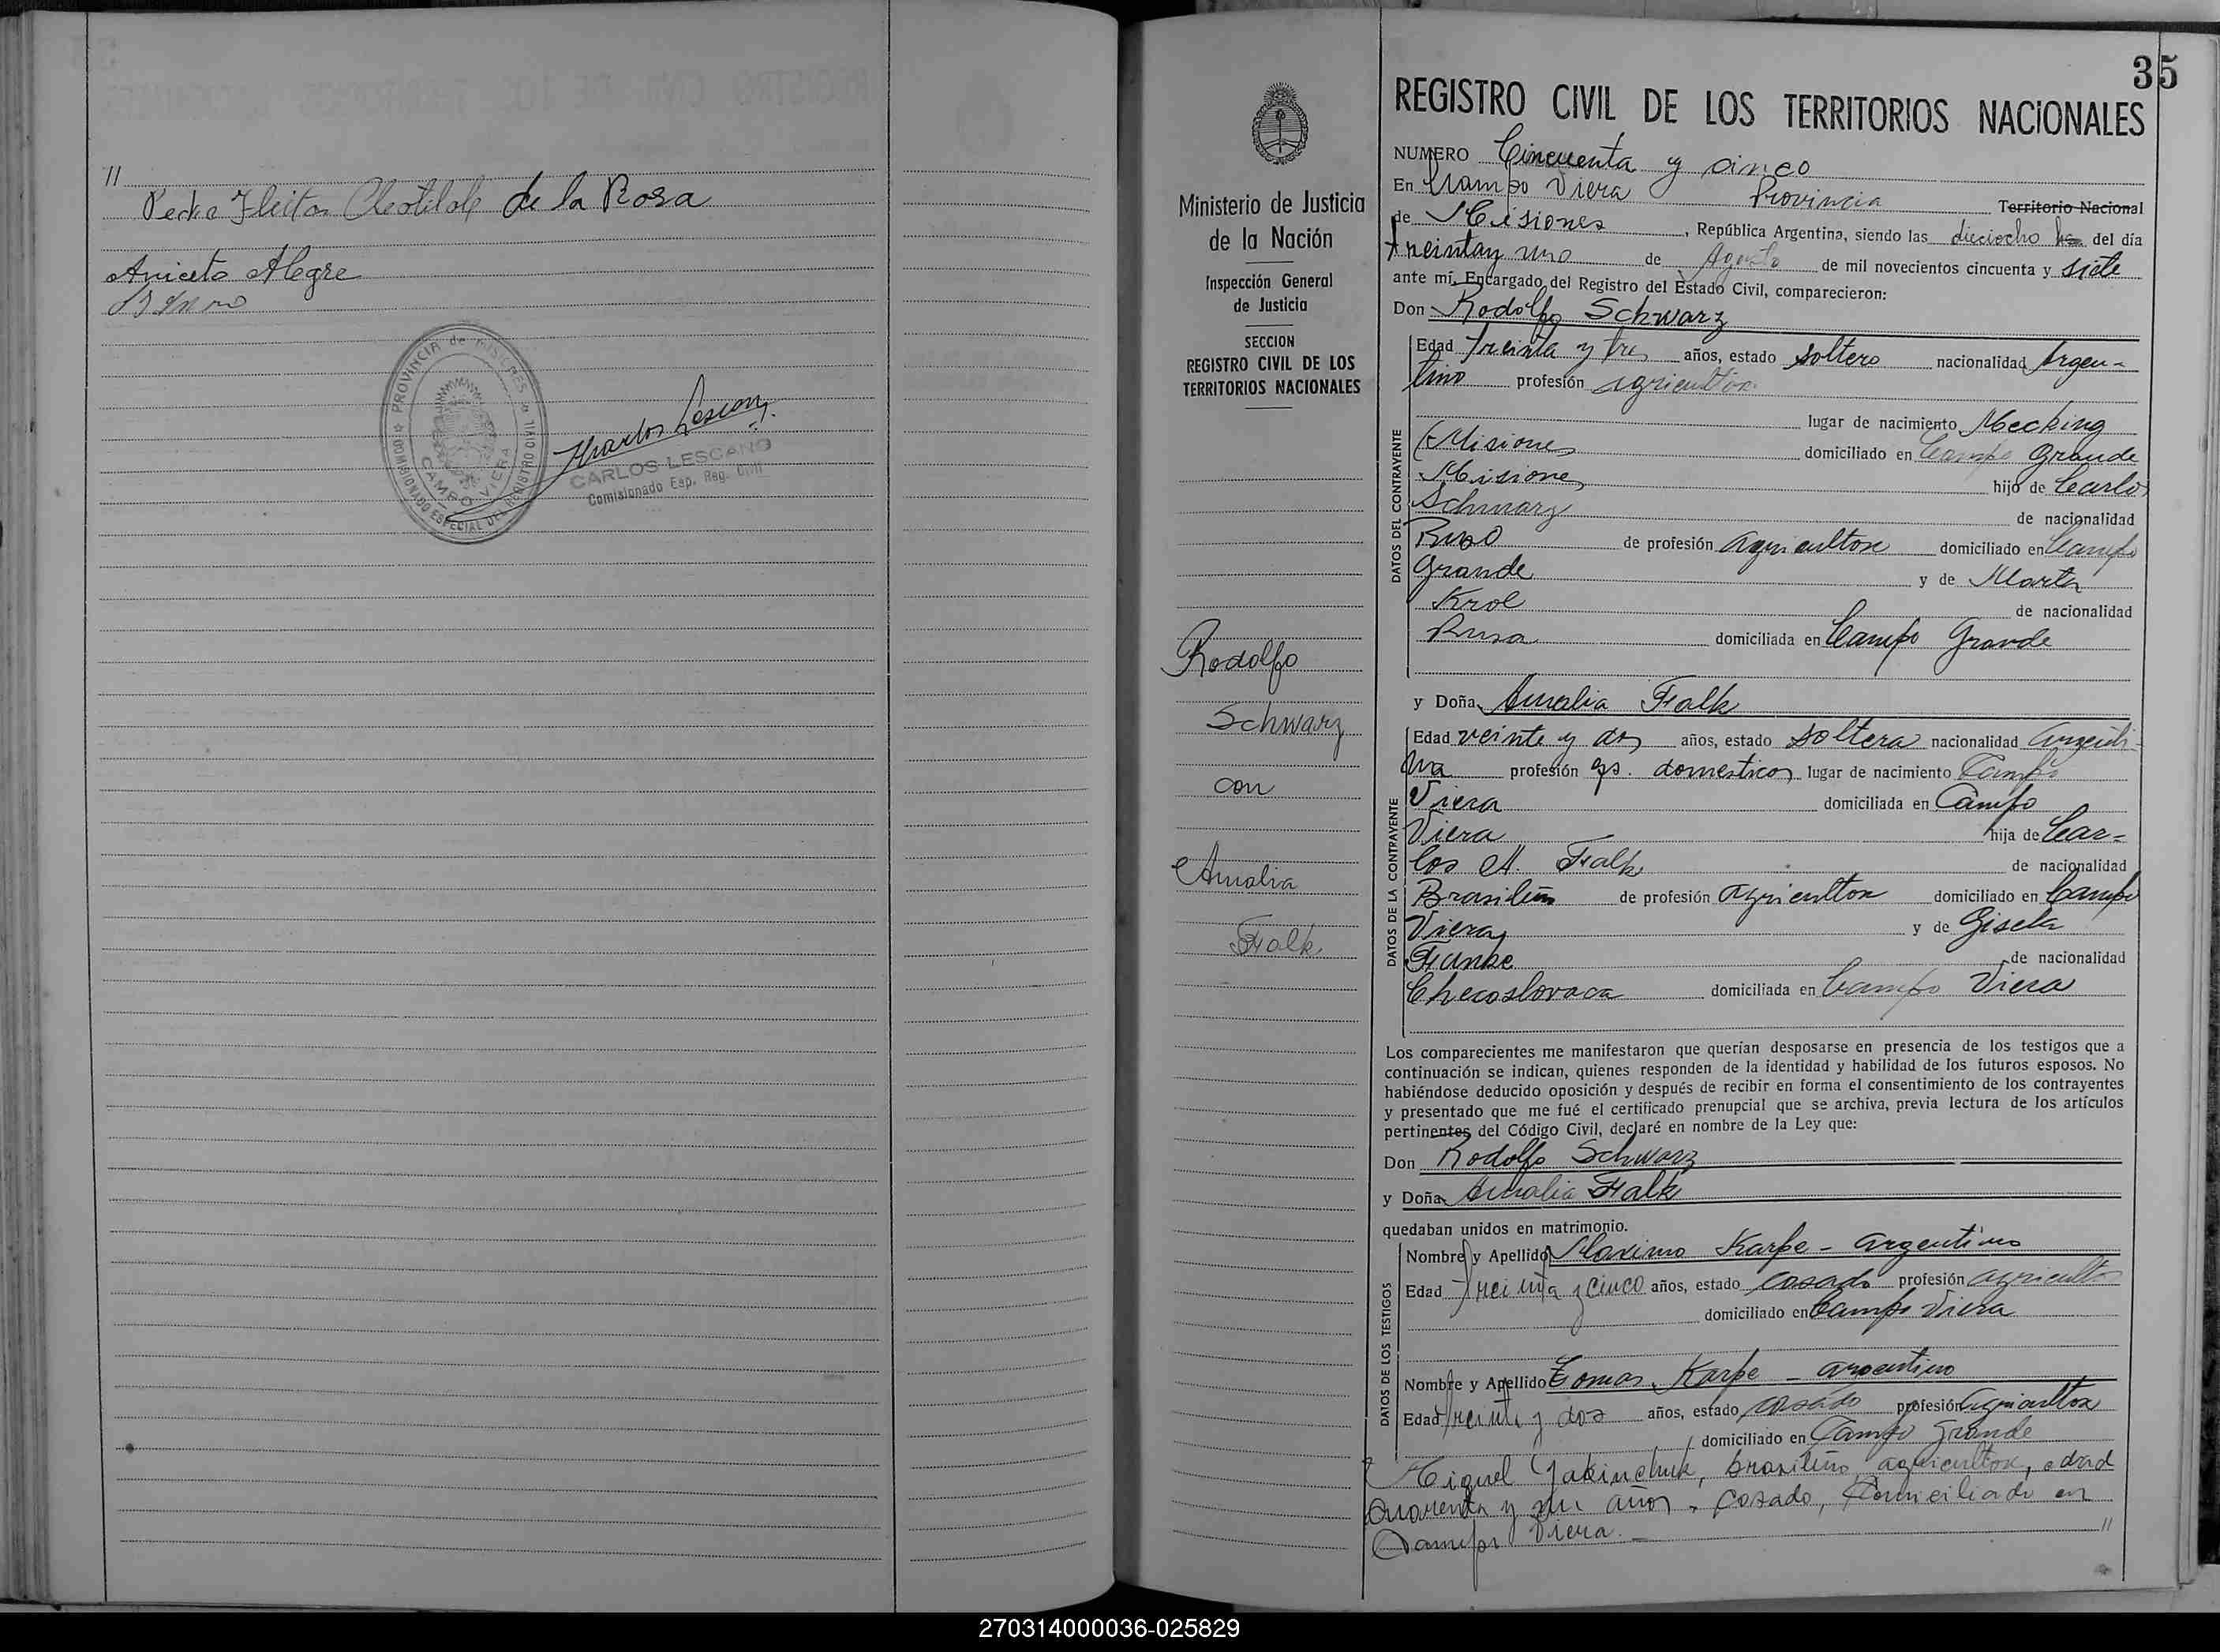 //
Pedro Fleitas Cleotilde de la Rosa
Aniceto Alegre
PROVINCIA de MISIONES
COMISIONADO ESPECIAL DEL REGISTRO CIVIL
CAMPO VIERA
CARLOS LESCANO
Comisionado Esp. Reg. Civil
35
Ministerio de Justicia
de la Nación
Inspección General
de Justicia
SECCION
REGISTRO CIVIL DE LOS
TERRITORIOS NACIONALES
Rodolfo
Schwarz
con
Amalia
Falk
REGISTRO CIVIL DE LOS TERRITORIOS NACIONALES
NUMERO Cincuenta y cinco
En Campo Viera Provincia Territorio Nacional
de Misiones, República Argentina, siendo las dieciocho hs del día
treinta y uno de Agosto de mil novecientos cincuenta y siete
ante mí, Encargado del Registro del Estado Civil, comparecieron:
Don Rodolfo Schwarz
DATOS DEL CONTRAYENTE
Edad treinta y tres años, estado soltero nacionalidad Argen-
tino profesión agricultor
lugar de nacimiento Mecking
(Misiones domiciliado en Campo Grande
Misiones hijo de Carlos
Schwarz de nacionalidad
Ruso de profesión agricultor domiciliado en Campo
Grande y de Marta
Krol de nacionalidad
Rusa domiciliada en Campo Grande
y Doña Amalia Falk
DATOS DE LA CONTRAYENTE
Edad veinte y dos años, estado soltera nacionalidad argenti-
na profesión qs. domesticos lugar de nacimiento Campo
Viera domiciliada en Campo
Viera hija de Car-
los A. Falk de nacionalidad
Brasileño de profesión agricultor domiciliado en Campo
Viera y de Gisela
Funke de nacionalidad
Checoslovaca domiciliada en Campo Viera
Los comparecientes me manifestaron que querían desposarse en presencia de los testigos que a
continuación se indican, quienes responden de la identidad y habilidad de los futuros esposos. No
habiéndose deducido oposición y después de recibir en forma el consentimiento de los contrayentes
y presentado que me fué el certificado prenupcial que se archiva, previa lectura de los artículos
pertinentes del Código Civil, declaré en nombre de la Ley que:
Don Rodolfo Schwarz
y Doña Amalia Falk
quedaban unidos en matrimonio.
DATOS DE LOS TESTIGOS
Nombre y Apellido Maximo Karpe - argentino
Edad treinta y cinco años, estado casado profesión agricultor
domiciliado en Campo Viera
Nombre y Apellido Tomas Karpe - argentino
Edad treinta y dos años, estado casado profesión agricultor
domiciliado en Campo Grande
Miguel Yakinchuk, brasileño, agricultor, edad
cuarenta y un años, casado, domiciliado en
Campo Viera. — //
270314000036-025829